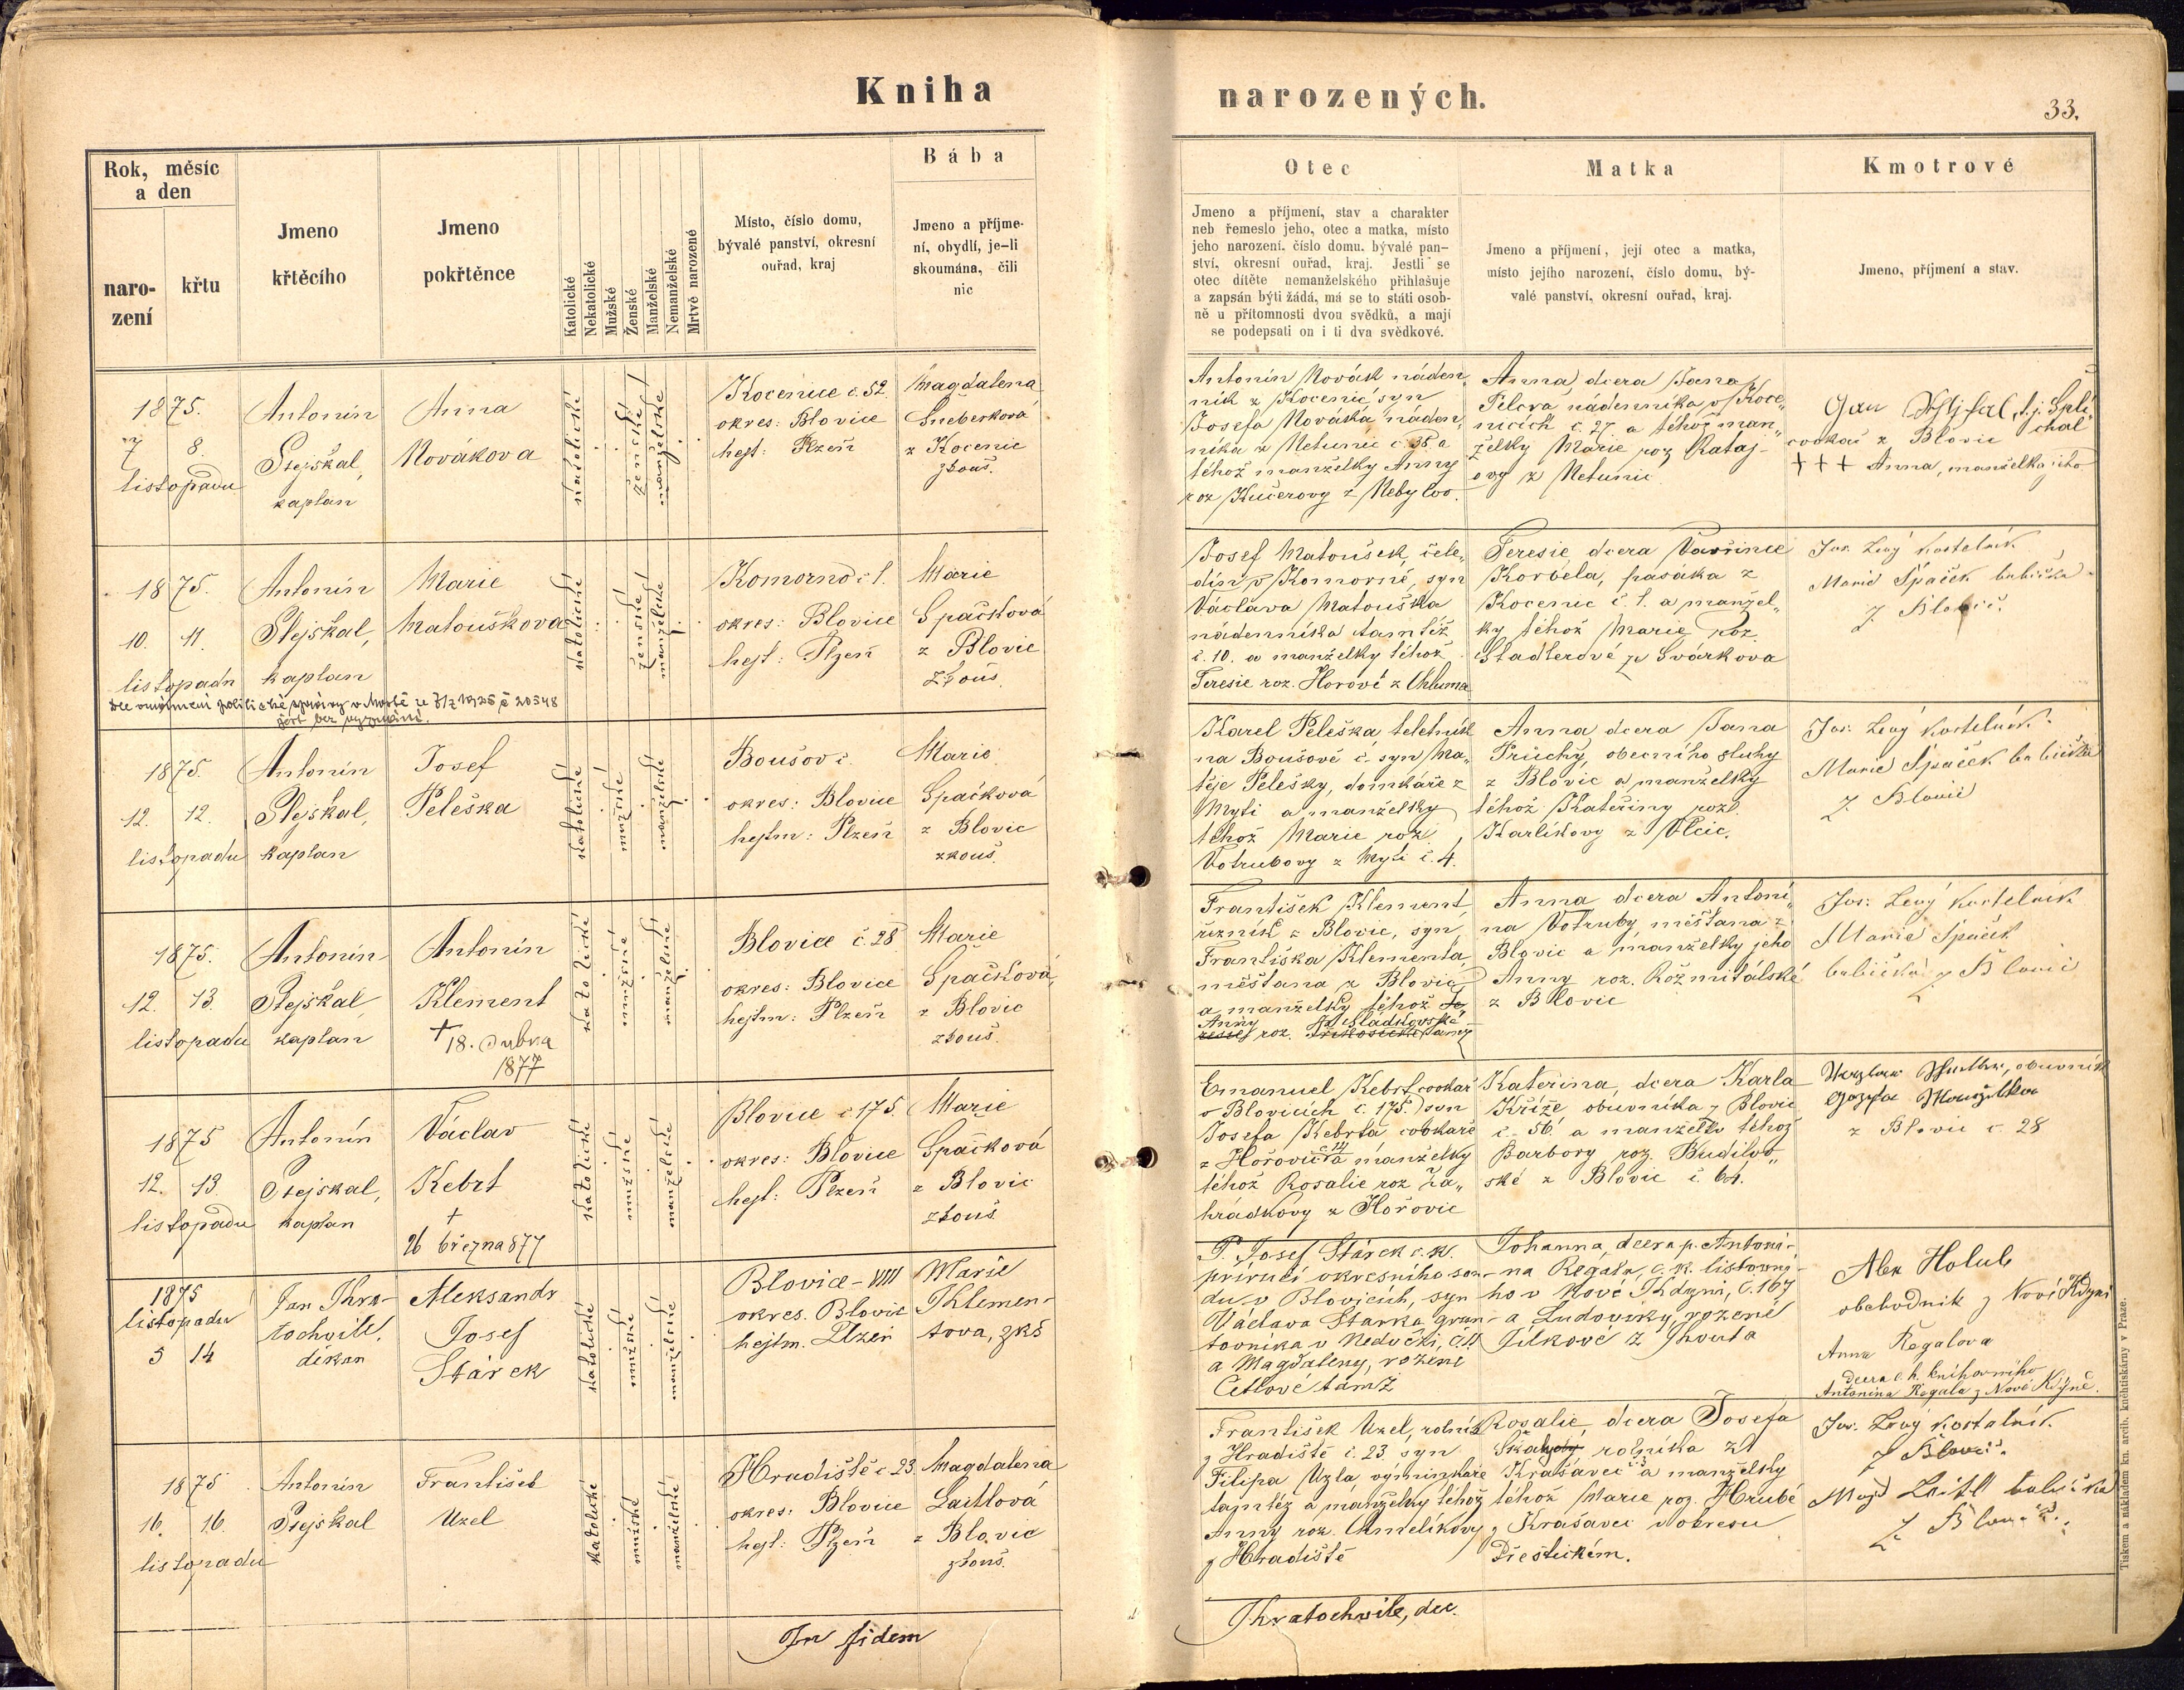 Kniha
narozených.
33.
Rok, měsíc
a den
naro-
zení
křtu
Jmeno
křtěcího
Jmeno
pokřtěnce
Katolické
Nekatolické
Mužské
Ženské
Manželské
Nemanželské
Mrtvě narozené
Místo, číslo domu,
bývalé panství, okresní
ouřad, kraj
Bába
Jmeno a příjme-
ní, obydlí, je-li
skoumána, čili
nic
Otec
Jmeno a příjmení, stav a charakter
neb řemeslo jeho, otec a matka, místo
jeho narození, číslo domu, bývalé pan-
ství, okresní ouřad, kraj. Jestli se
otec dítěte nemanželského přihlašuje
a zapsán býti žádá, má se to státi osob-
ně u přítomnosti dvou svědků, a mají
se podepsati on i ti dva svědkové.
Matka
Jmeno a příjmení, její otec a matka,
místo jejího narození, číslo domu, bý-
valé panství, okresní ouřad, kraj.
Kmotrové
Jmeno, příjmení a stav.
1875.
7 8.
listopadu
Antonín
Stejskal,
kaplan
Anna
Nováková
katolické
ženské
manželské
Kocenice č. 52.
okres: Blovice
hejt: Plzeň
Magdalena
Šneberková
z Kocenic
zkouš.
Antonín Novák náden
ník z Kocenic syn
Josefa Nováka náden
níka z Netunic č. 38. a
téhož manželky Anny
roz Kučerovy z Nebylov.
Anna, dcera Jana
Pelcra nádenníka v Koce„
nicích č. 27 a téhož man„
želky Marie roz Rataj-
ovy z Netunic.
Jan t. j. Špli
chal
cvokař z Blovic
+++ Anna, manželka jeho
1875.
10. 11.
listopadu
Antonín
Stejskal,
kaplan
Marie
Matoušková
katolické
ženské
manželské
Komorno č 1.
okres: Blovice
hejt: Plzeň
Marie
Špačková
z Blovic
zkouš.
Josef Matoušek, čele„
dín, v Komorně, syn
Václava Matouška
nádenníka tamtéž
č. 10. a manželky téhož
Teresie roz. Horové z Chluma
Teresie dcera Vavřince
Korbela, pasáka z
Kocenic č. 1. a manžel„
ky téhož Marie roz.
Stadlerové ze Svárkova
Jos. Levý kostelník
Marie Špaček babička
z Blovic.
Dle oznámení politické správy v Mostě ze 1925 č 20548
jest bez vyznání.
1875.
12. 12.
listopadu
Antonín
Stejskal,
kaplan
Josef
Peleška
katolické
mužské
manželské
Boušov č.
okres: Blovice
hejtm: Plzeň
Marie
Špačková
z Blovic
zkouš.
Karel Peleška
na Boušově č. syn Ma„
těje Pelešky, domkáře z
Mytí a manželky
téhož Marie roz.
Votrubovy z Mytí č. 4.
Anna dcera Jana
Průchy, obecního sluhy
z Blovic a manželky
téhož Kateřiny roz.
Karlíkovy z Vlčic.
Jos. Levý kostelník.
Marie Špaček babička
z Blovic
1875.
12. 13.
listopadu
Antonín
Stejskal
kaplan
Antonín
Klement
+ 18. dubna
1877
katolické
mužské
manželské
Blovice č. 28
okres: Blovice
hejtm: Plzeň
Marie
Špačková,
z Blovic
zkouš.
František Klement,
řezník z Blovic, syn
Františka Klementa
měšťana z Blovic
a manželky téhož
Anny
roz.
Anna dcera Antoní„
na Votruby, měšťana z
Blovic a manželky jeho
Anny roz. Rožmitálské
z Blovic
Jos. Levý kostelník
Marie Špaček
babička z Blovic
1875
12. 13.
listopadu
Antonín
Stejskal,
kaplan
Václav
Kebrt
+
26 března 877
katolické
mužské
manželské
Blovice č 175.
okres: Blovice
hejt: Plzeň
Marie
Špačková
z Blovic
zkouš.
Emanuel Kebrt cvokař
v Blovicích č. 175. syn
Josefa Kebrta cvokaře
z Hořovic č 14 a manželky
téhož Rosalie roz Za„
hrádkovy z Hořovic
Kateřina, dcera Karla
Kříže obuvníka z Blovic
č. 56. a manželky téhož
Barbory roz. Budilov„
ské z Blovic č. 64.
obuvník
z Blovic č. 28
1875
listopadu
5 14
Jan Kra-
tochvíle,
děkan
Aleksandr
Josef
Stárek
katolické
mužské
manželské
Blovice - VIII
okres. Blovice
hejtm. Plzeň
Marie
Klemen-
tova, zkš
P. Josef Stárek c. k.
příručí okresního sou-
du v Blovicích, syn
Václava Stárka, grun-
tovníka v
a Magdaleny, rozené
Cetlové tamž
Johanna, dcera p. Antoní-
na Regala, c. k. listovní-
ho v Nové Kdyni, č. 167
a Ludoviky, rozené
Jílkové z
Alex Holub
obchodník z Nové Kdyně
Anna Regalova
dcera
Antonína Regala z Nové Kdyně.
1875
16. 16.
listopadu
Antonín
Stejskal
František
Uzel
katolické
mužské
manželské
Hradiště č 23.
okres: Blovice
hejt: Plzeň
Magdalena
Laitlová
z Blovic
zkouš.
František Uzel, rolník
z Hradiště č. 23. syn
Filipa Uzla výminkáře
tamtéž a manželky téhož
Anny roz. Chmelíkovy
z Hradiště
Rosalie, dcera Josefa
rolníka z
Krašovec a manželky
téhož Marie roz. Hrubé
z Krašovec v okresu
Přeštickém.
Jos. Levý kostelník.
z Blovic.
Magd Leitl babička
z Blovic.
In fidem
Kratochvile, dec.
Tiskem a nákladem kn. arcib. knihtiskárny v Praze.